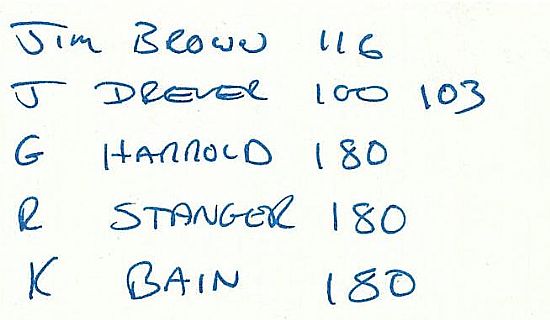 Jim BROWN 116
J DREVER 100 103
G HARROLD 180
R STANGER 180
K BAIN 180